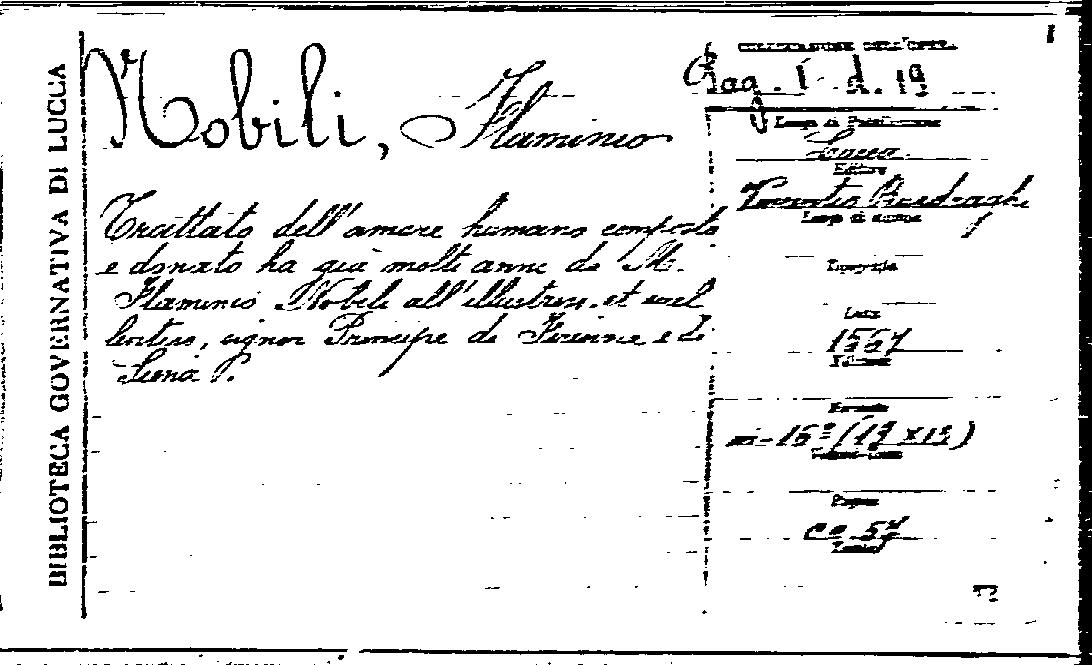 BIBLIOTECA GOVERNATIVA DI LUCCA
Nobili, Flaminio
Trattato dell'amore humano composto
e donato ha già molti anni da M.
Flaminio Nobili all'illustriss. et excel
lentiss. signor Principe di Firenze e di
Siena P.
COLLOCAZIONE DELL'OPERA
Bag. 1 d. 19
Luogo di Pubblicazione
Lucca
Editore
Vincentio Busdraghi
Luogo di stampa
Tipografia
Data
1567
Volumi
Formato
in-16º (19 x 13)
Pagine
cc 57